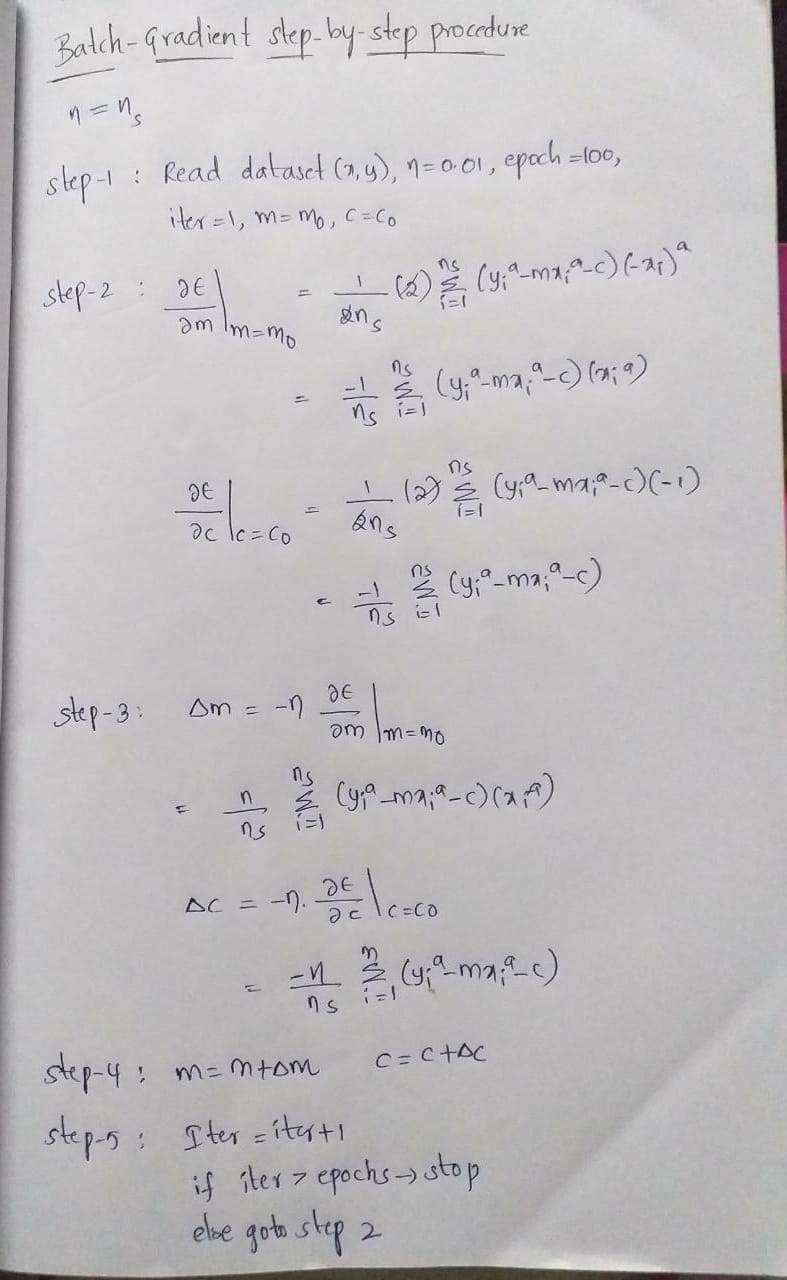 Batch-Gradient step-by-step procedure
η = n_s
step-1 : Read dataset (x,y), η=0.01, epoch=100,
iter=1, m=m₀, c=c₀
step-2 : ∂E/∂m |m=m₀ = 1/2n_s (2) Σ_{i=1}^{ns} (yᵢᵃ-mxᵢᵃ-c)(-xᵢ)ᵃ
= -1/n_s Σ_{i=1}^{ns} (yᵢᵃ-mxᵢᵃ-c)(xᵢᵃ)
∂E/∂c |c=c₀ = 1/2n_s (2) Σ_{i=1}^{ns} (yᵢᵃ-mxᵢᵃ-c)(-1)
= -1/n_s Σ_{i=1}^{ns} (yᵢᵃ-mxᵢᵃ-c)
step-3: Δm = -η ∂E/∂m |m=m₀
= η/n_s Σ_{i=1}^{ns} (yᵢᵃ-mxᵢᵃ-c)(xᵢᵃ)
Δc = -η. ∂E/∂c |c=c₀
= -η/n_s Σ_{i=1}^{n} (yᵢᵃ-mxᵢᵃ-c)
step-4 : m=m+Δm c=c+Δc
step-5 : Iter=iter+1
if iter > epochs → stop
else goto step 2